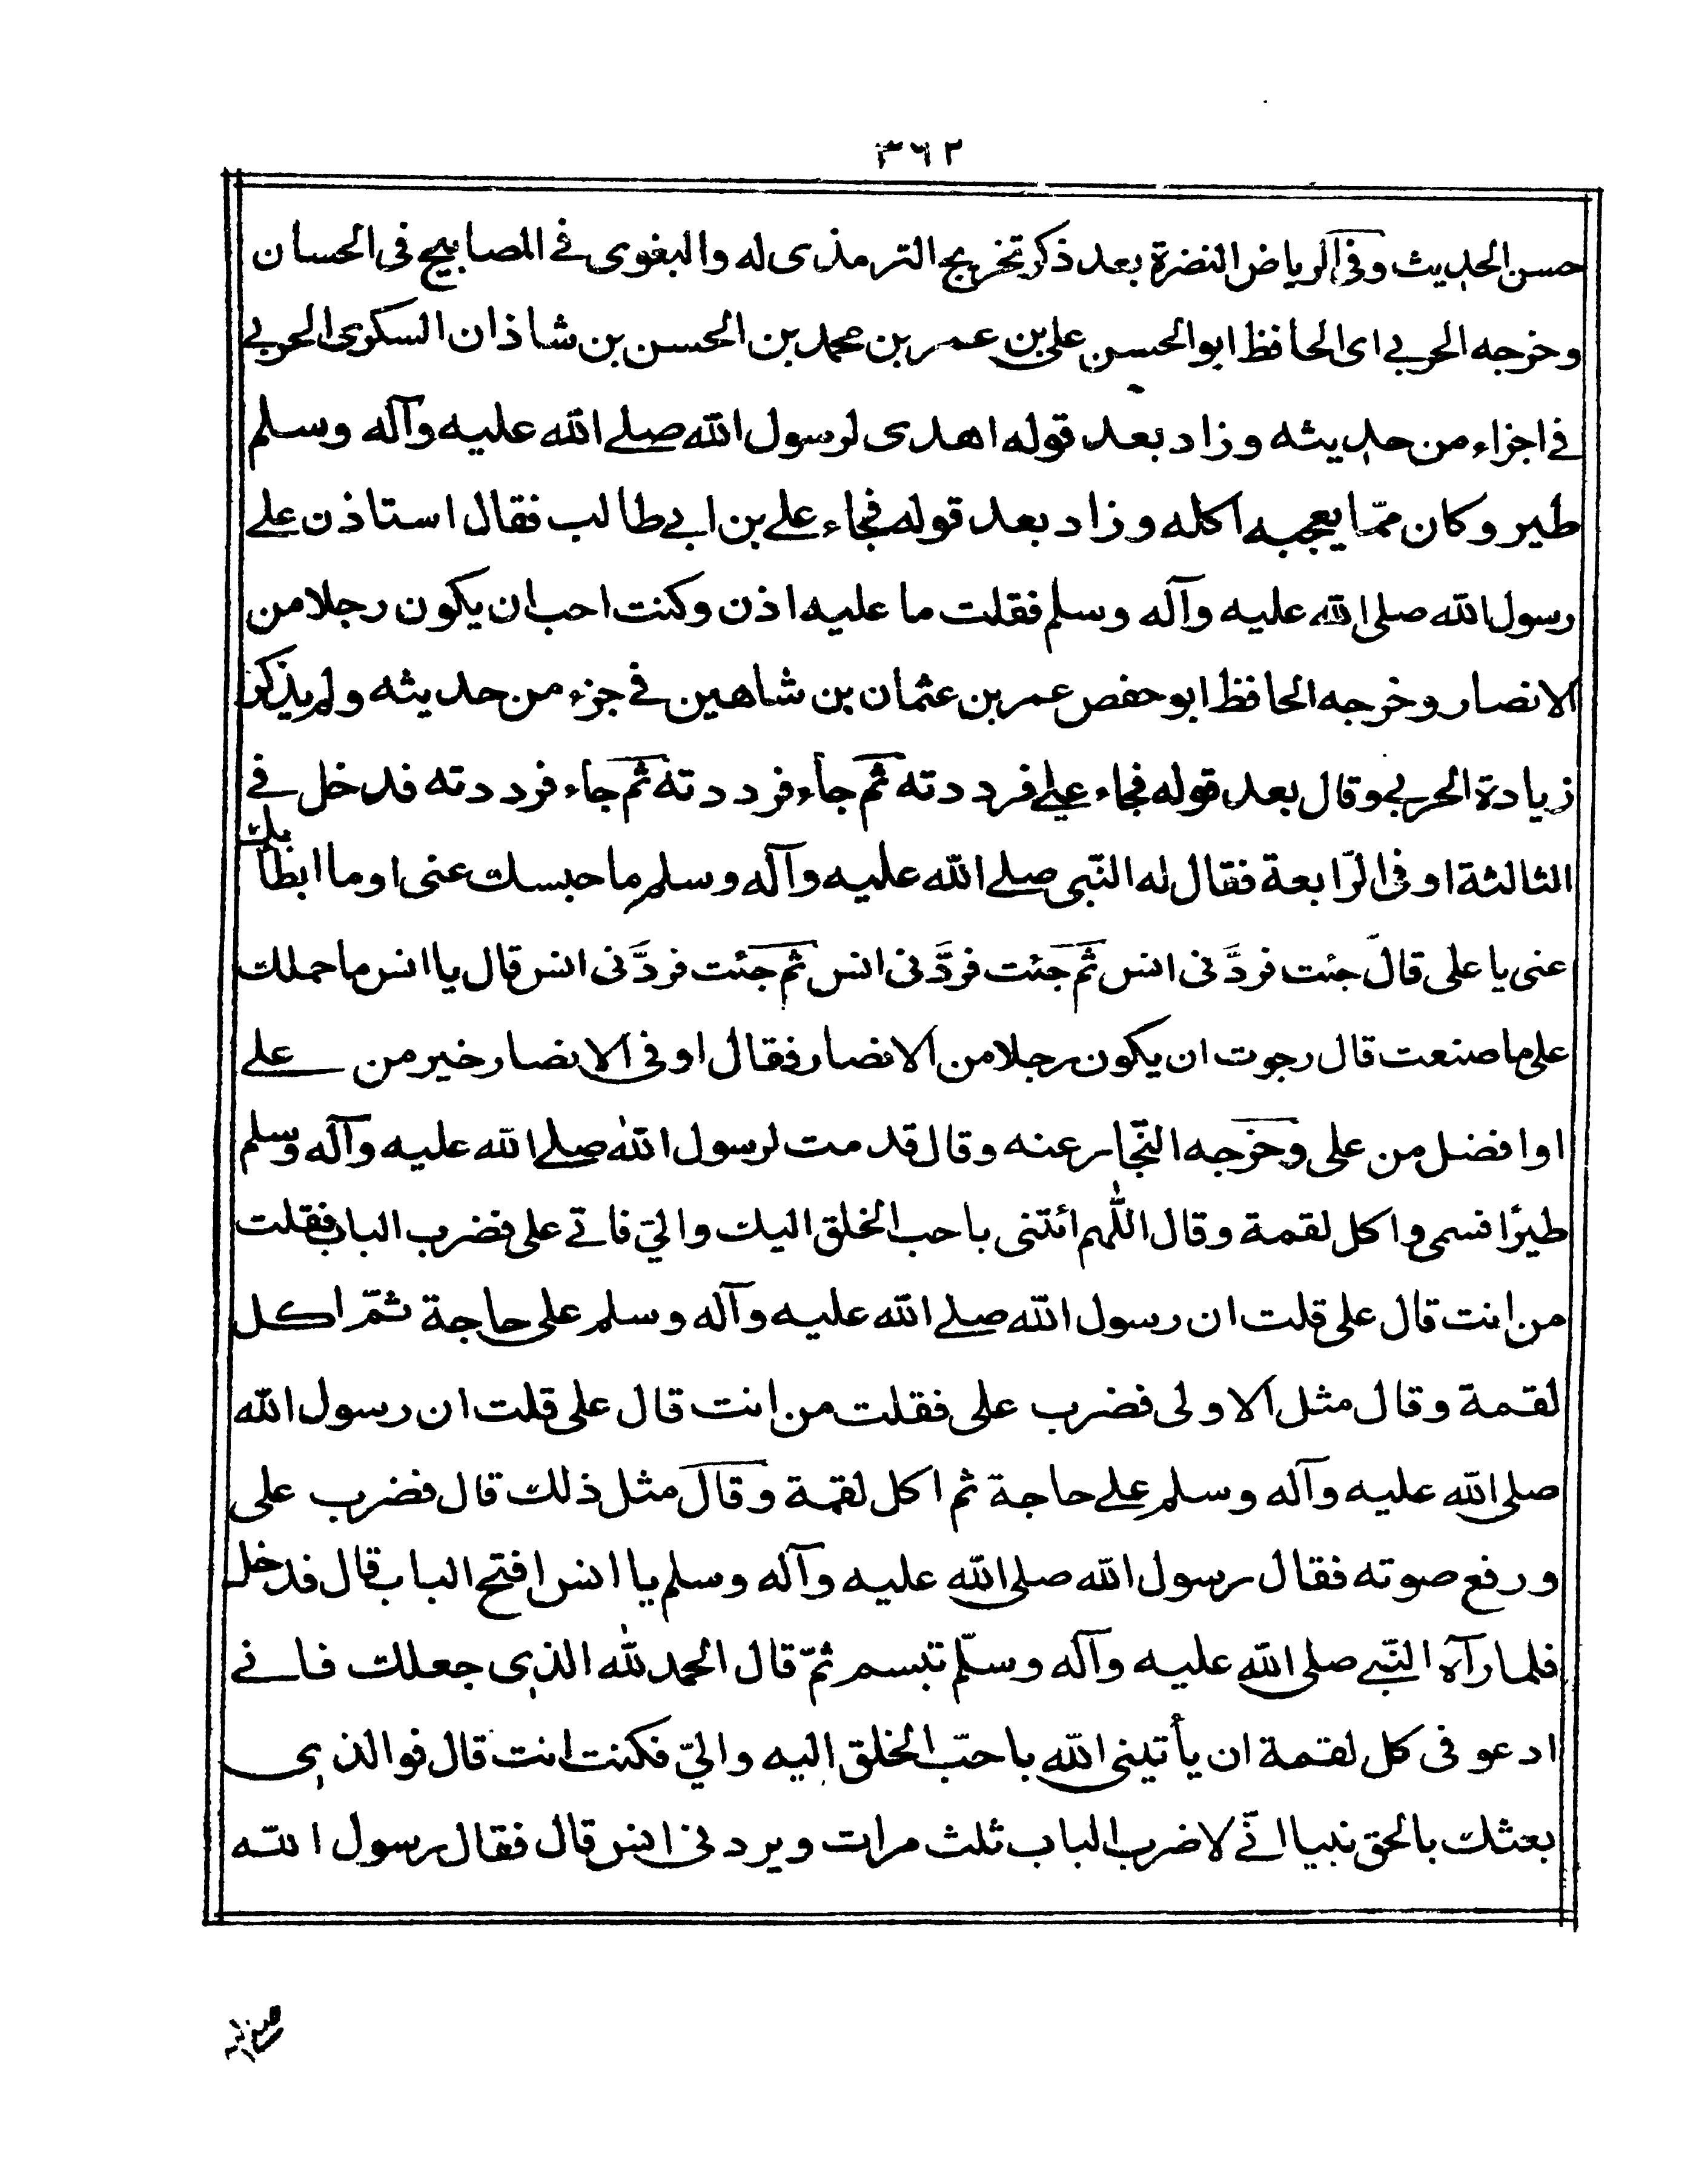 ٣٦٢
حسن الحديث وفى الرياض النضرة بعد ذكر تخريج الترمذى له والبغوى فے المصابيح فى الحسان
وخرجه الحربے اى الحافظ ابو الحسن على بن عمر بن محمد بن الحسن بن شاذان السكرى الحربے
فے اجزاء من حديثه وزاد بعد قوله اهدى لرسول الله صلے الله عليه وآله وسلم
طير وكان ممّا يعجبه اكله وزاد بعد قوله فجاء علے بن ابے طالب فقال استاذن علے
رسول الله صلى الله عليه وآله وسلم فقلت ما عليه اذن وكنت احب ان يكون رجلا من
الانصار وخرجه الحافظ ابو حفص عمر بن عثمان بن شاهين فے جزء من حديثه ولم يذكر
زيادة الحربے وقال بعد قوله فجاء علے فرددته ثم جاء فرددته ثم جاء فرددته فدخل فے
الثالثة او فى الرّابعة فقال له النّبى صلے الله عليه وآله وسلم ما حبسك عنى او ما ابطأ بك
عنى يا على قال جئت فردَّنى انس ثم جئت فردَّنى انس ثم جئت فردَّنى انس قال يا انس ما حملك
على ما صنعت قال رجوت ان يكون رجلا من الانصار فقال او فى الانصار خير من علے
او افضل من على وخرجه النّجار عنه وقال قدمت لرسول الله صلے الله عليه وآله وسلم
طيرًا فسمى واكل لقمة وقال اللّٰهم ائتنى باحب الخلق اليك والىّ فاتے على فضرب الباب فقلت
من انت قال على قلت ان رسول الله صلے الله عليه وآله وسلم على حاجة ثمّ اكل
لقمة وقال مثل الاولى فضرب على فقلت من انت قال على قلت ان رسول الله
صلى الله عليه وآله وسلم علے حاجة ثم اكل لقمة وقال مثل ذلك قال فضرب على
ورفع صوته فقال رسول الله صلى الله عليه وآله وسلم يا انس افتح الباب قال فدخل
فلما رآه النّبے صلى الله عليه وآله وسلّم تبسم ثمّ قال الحمد لله الذى جعلك فانے
ادعو فى كل لقمة ان يأتينى الله باحبّ الخلق اليه والىّ فكنت انت قال فوالذى
بعثك بالحق نبيا انّے لاضرب الباب ثلث مرات ويردنى انس قال فقال رسول الله